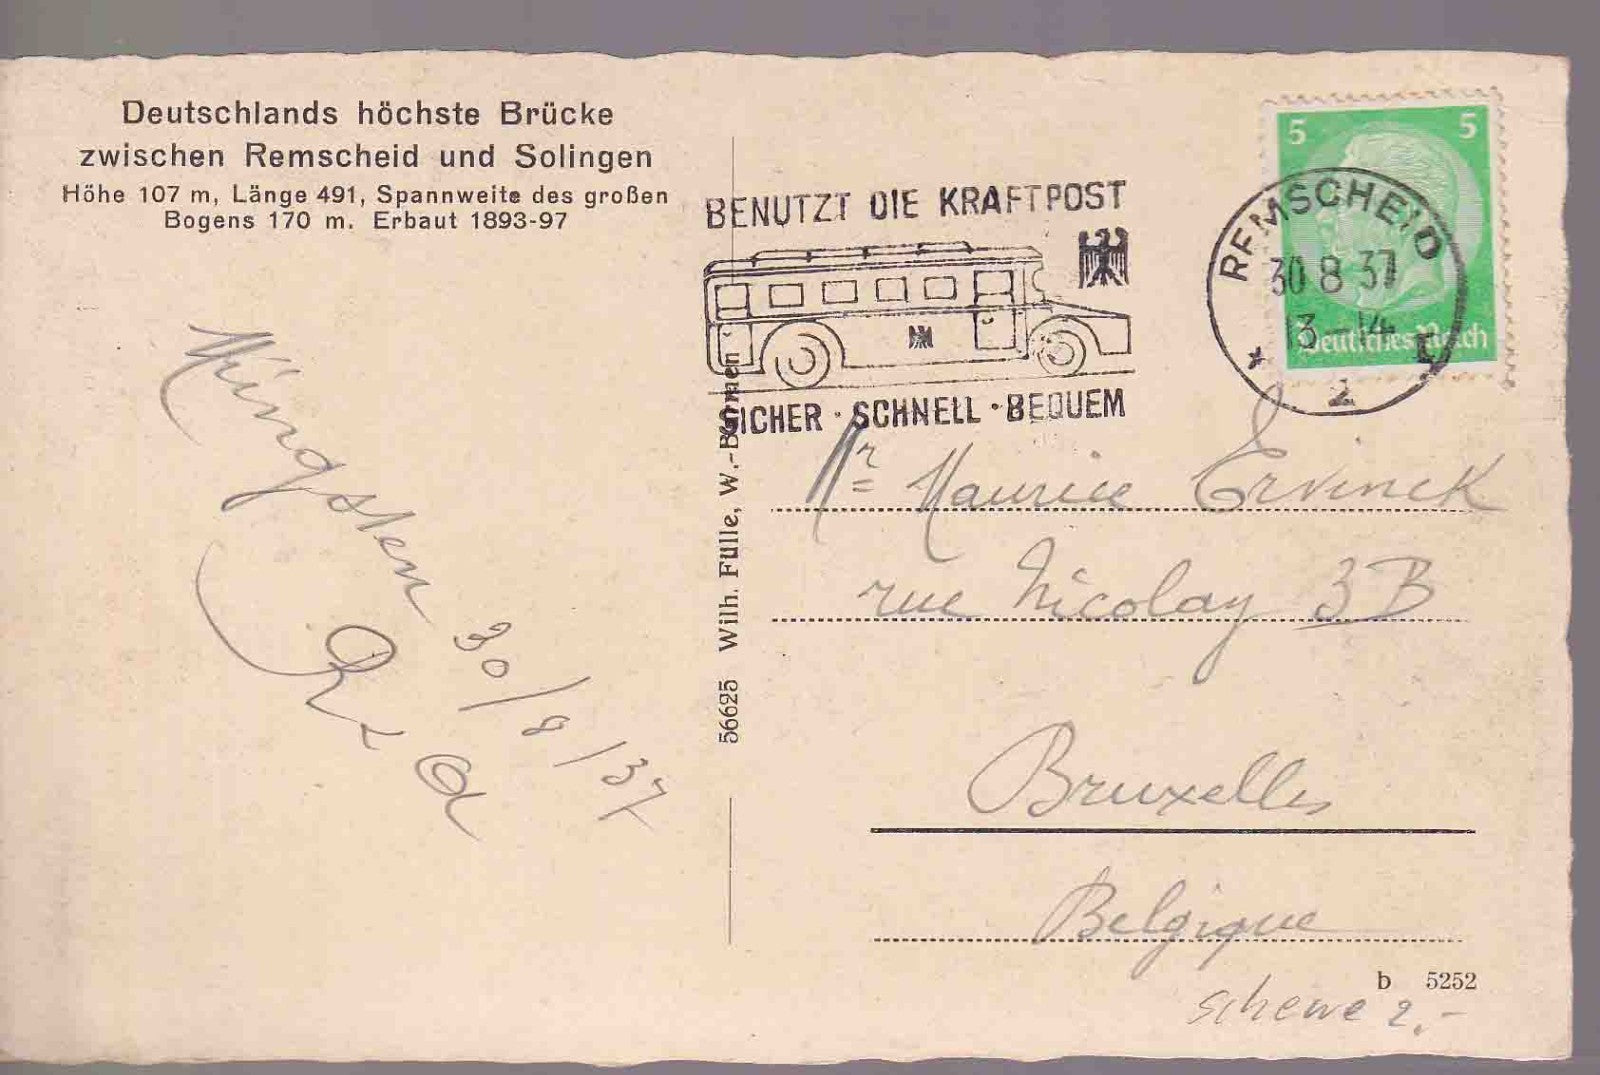 Deutschlands höchste Brücke
zwischen Remscheid und Solingen
Höhe 107 m, Länge 491, Spannweite des großen
Bogens 170 m. Erbaut 1893-97
Müngsten 30/8/37
56625 Wilh. Fülle, W.-Barmen
BENUTZT DIE KRAFTPOST
SICHER · SCHNELL · BEQUEM
REMSCHEID
30 8 37
13-14
2
5 5
Deutsches Reich
Mr Maurice Ervinck
rue Nicolay 3B
Bruxelles
Belgique
b 5252
schewe 2.-